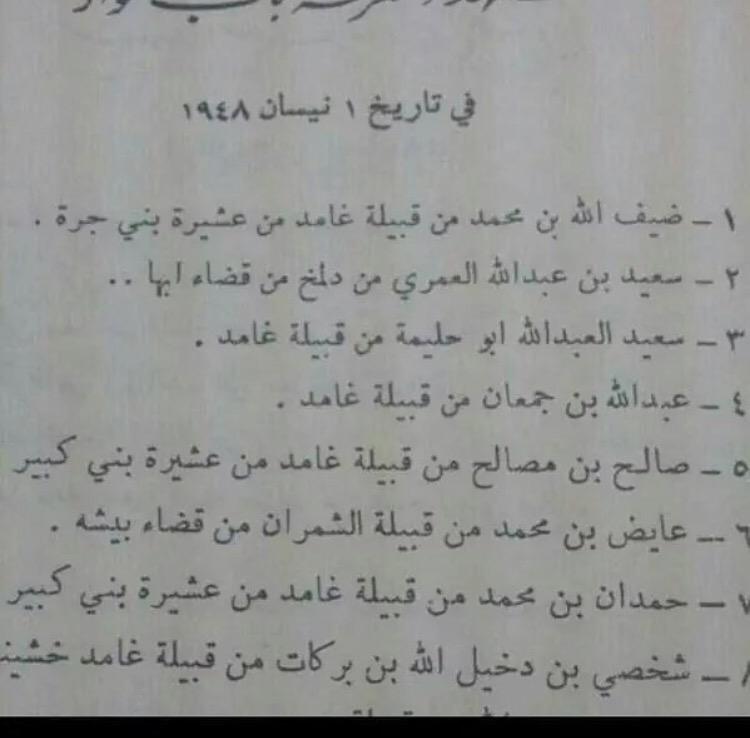 في تاريخ ١ نيسان ١٩٤٨
١ - ضيف الله بن محمد من قبيلة غامد من عشيرة بني جرة .
٢ - سعيد بن عبدالله العمري من دلمخ من قضاء ابها ..
٣ - سعيد العبدالله ابو حليمة من قبيلة غامد .
٤ - عبدالله بن جمعان من قبيلة غامد .
٥ - صالح بن مصالح من قبيلة غامد من عشيرة بني كبير
٦ - عايض بن محمد من قبيلة الشمران من قضاء بيشه .
٧ - حمدان بن محمد من قبيلة غامد من عشيرة بني كبير
٨ - شخصي بن دخيل الله بن بركات من قبيلة غامد